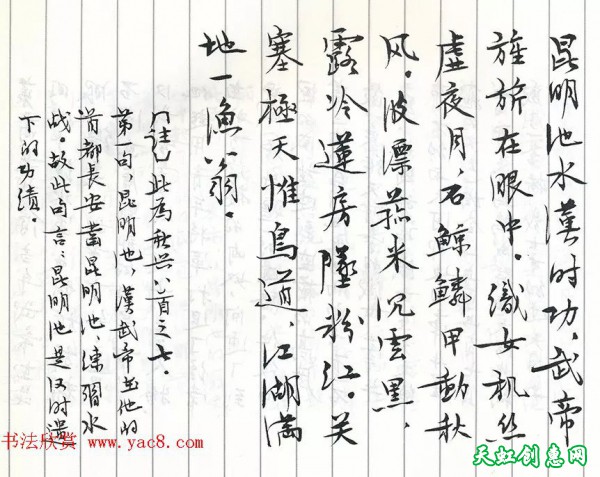 昆明池水漢时功,武帝
旌旂在眼中。織女机丝
虚夜月,石鯨鱗甲動秋
风。波漂菰米沉雲黑,
露冷蓮房墜粉红。关
塞極天惟鸟道,江湖满
地一漁翁。
[注]此為秋兴八首之七。
第一句,昆明池,漢武帝在他的
首都長安凿昆明池,练習水
战。故此句言:昆明池是汉时遗
下的功绩。
书法欣赏 www.yac8.com
天虹创惠网